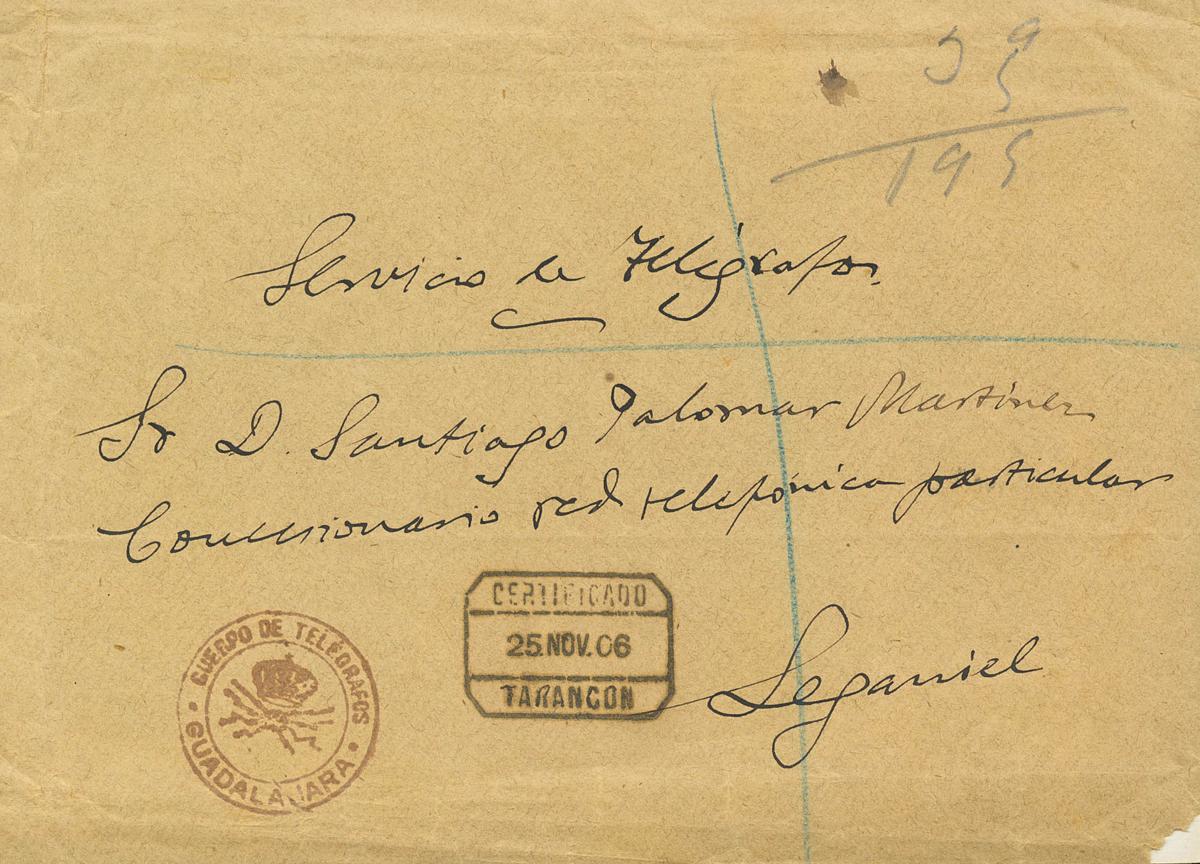 39
5
195
Servicio de Telégrafos.
Sr D. Santiago Palomar Martinez
Concesionario red telefónica particular
Leganiel
CERTIFICADO
25.NOV.06
TARANCON
CUERPO DE TELÉGRAFOS
GUADALAJARA